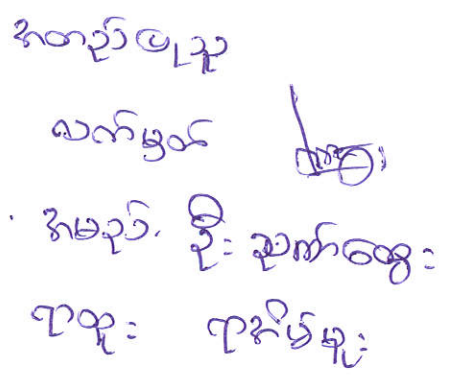 အတည်ပြုသူ
လက်မှတ်
အမည်. ဦး ညွှဏ်ထွေး
ရာထူး ရာအိမ်မှူး